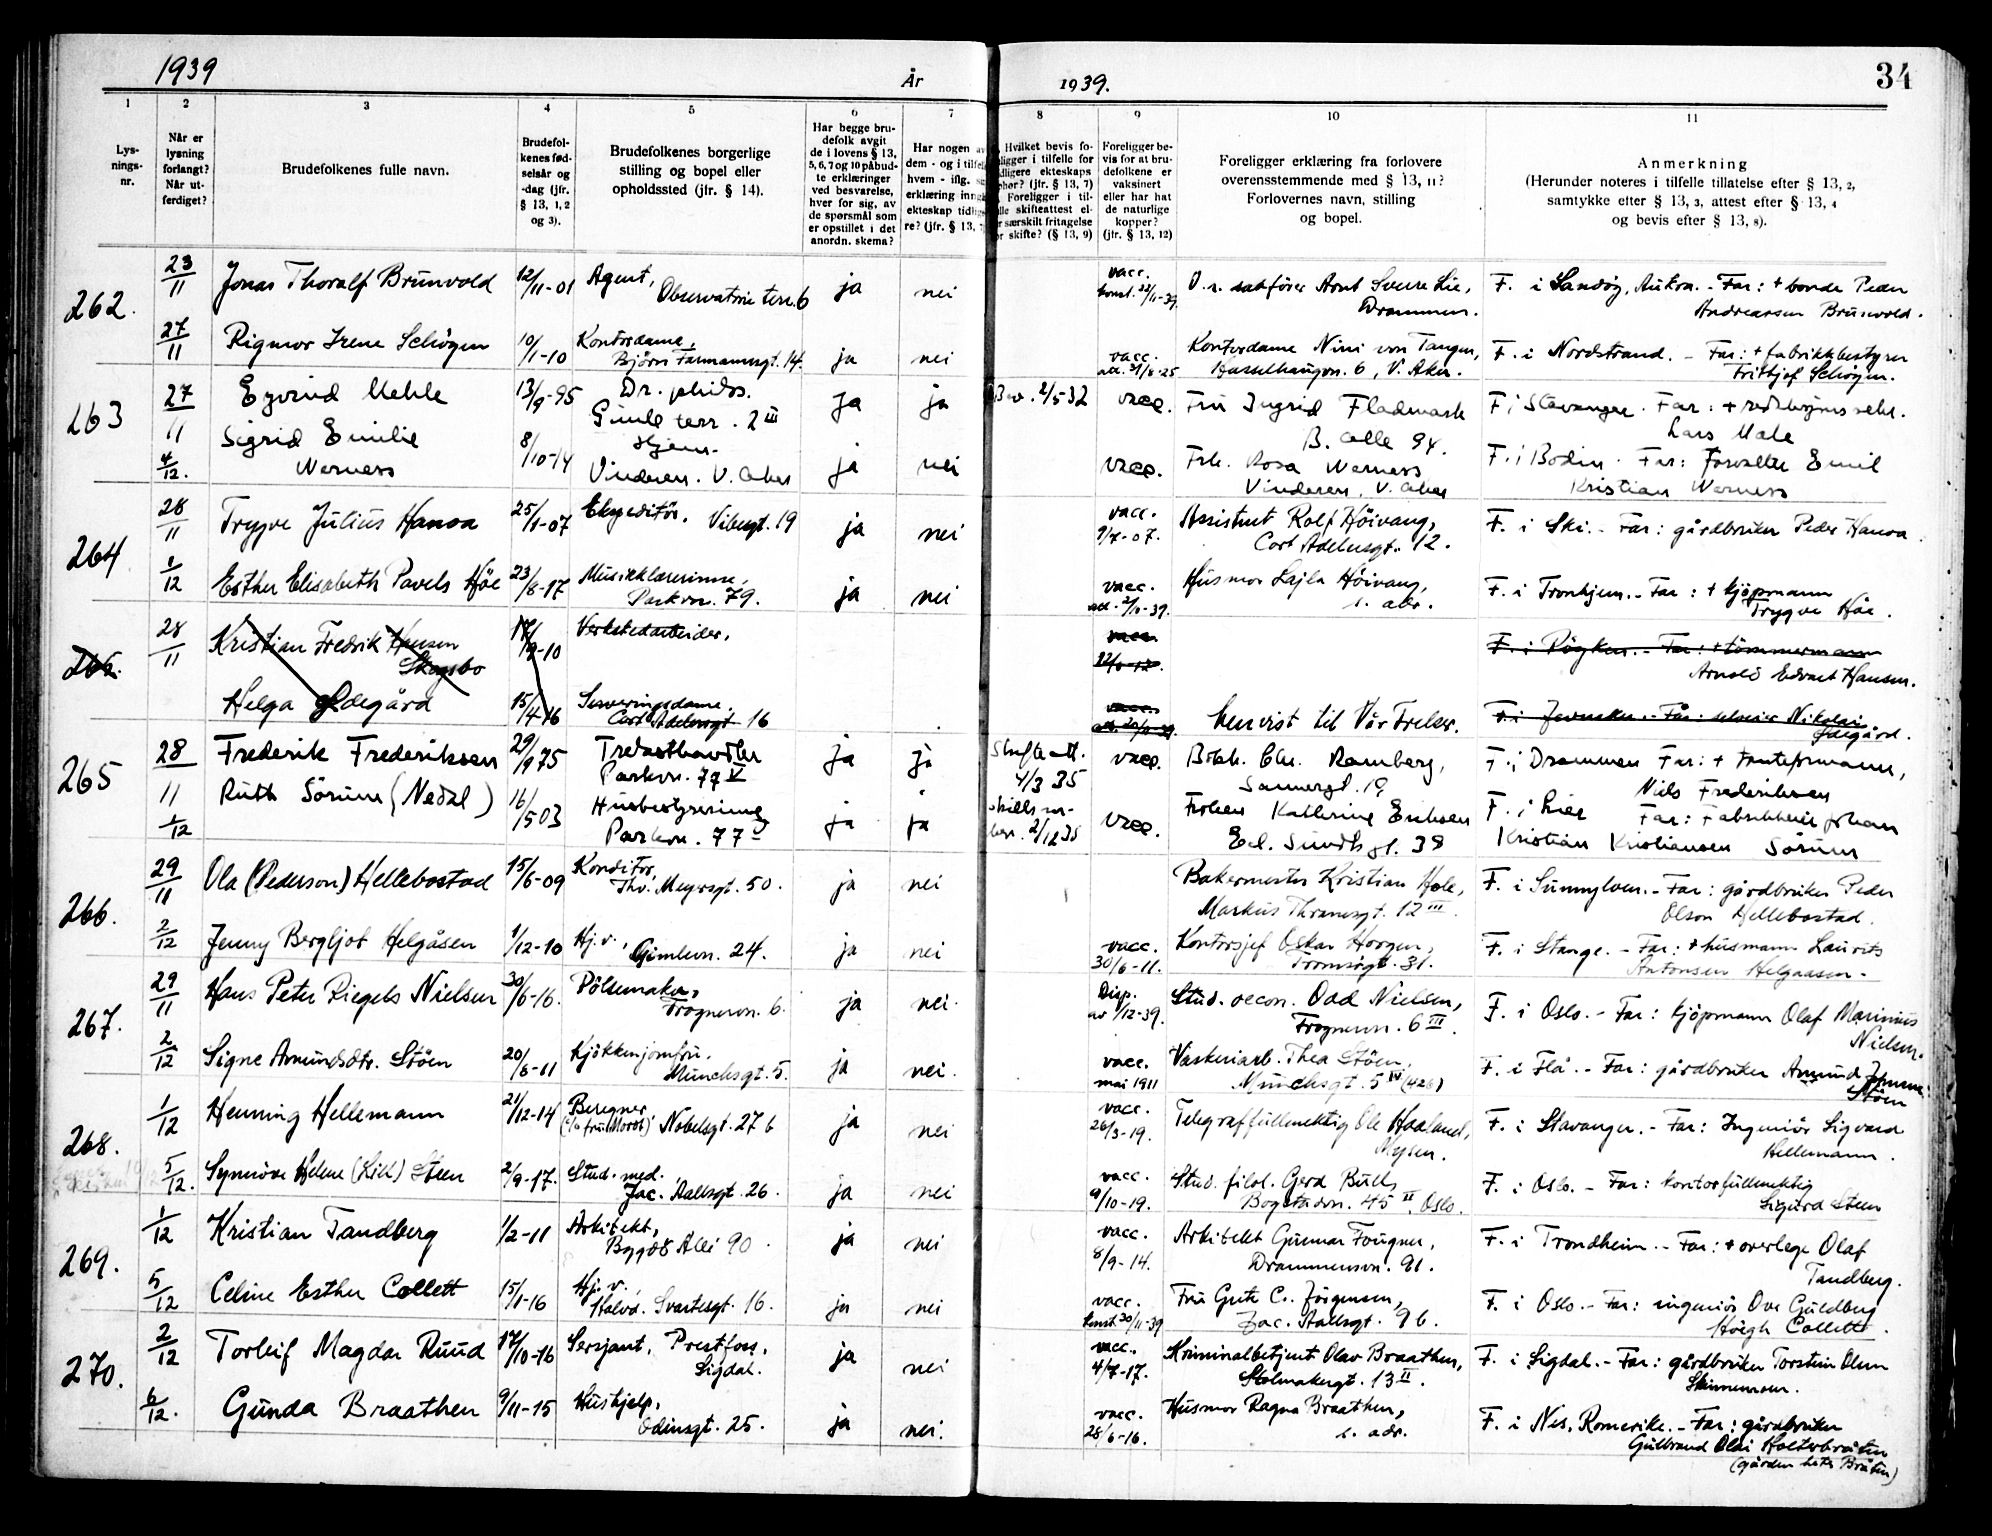 1939
År
1939.
34
1
2
3
4
5
6
7
8
9
10
11
Lys-
nings-
nr.
Når er
lysning
forlangt?
Når ut-
ferdiget?
Brudefolkenes fulle navn.
Brudefol-
kenes fød-
selsår og
-dag (jfr.
§ 13, 1, 2
og 3).
Brudefolkenes borgerlige
stilling og bopel eller
opholdssted (jfr. § 14).
Har begge bru-
defolk avgit
de i lovens § 13,
5, 6, 7 og 10 påbud-
te erklæringer
ved besvarelse,
hver for sig, av
de spørsmål som
er opstillet i det
anordn. skema?
Har nogen
dem - og i
hvem - iflg.
erklæring
ekteskap
re? (jfr. § 13,
Hvilket bevis fo-
ligger i tilfelle for
ekteskaps
(jfr. § 13, 7)
Foreligger i til-
skifteattest el-
særskilt fritagelse
skifte? (§ 13, 9)
Foreligger be-
vis for at bru-
defolkene er
vaksinert
eller har hat
de naturlige
kopper?
(jfr. § 13, 12)
Foreligger erklæring fra forlovere
overensstemmende med § 13, 11?
Forlovernes navn, stilling
og bopel.
Anmerkning
(Herunder noteres i tilfelle tillatelse efter § 13, 2,
samtykke efter § 13, 3, attest efter § 13, 4
og bevis efter § 13, 8).
262.
23/11 Jonas Thoralf Brunvold 12/11-01 Agent, ja nei vacc. O.r. sakfører Arnt Sverre Lie, F. i Sandøy, Aukra. - Far: + bonde Peder
Observatorie terr. 6 konst. 22/11-39 Drammen. Andreassen Brunvold.
27/11 Rigmor Irene Schøgen 10/1-10 Kontordame, ja nei vacc. Kontordame Nini von Tangen, F. i Nordstrand. - Far: + fabrikkbestyrer
Bjørn Farmannsgt. 14. att. 31/8-25 Hasselhaugvn. 6, V. Aker. Frithjof Schøgen.
263
27/11 Eyvind Mehle 13/9-95 Dr. philos. ja ja Bev. 2/5 32 vacc. Fru Ingrid Flademark F. i Stavanger. Far: +
Gimle terr. 2 III B. alle 94. Lars Male
4/12. Sigrid Emilie 8/10-14 Hjem. ja nei vacc. Frk. Rosa Werners F. i Bodin. Far: forvalter Emil
Werners Vinderen. V. Aker Vinderen, V. Aker Kristian Werners
264
28/11 Trygve Julius Hanoa 25/1-07 Ekspeditør, Vibesgt. 19 ja nei vacc. Assistent Rolf Høivang, F. i Ski. - Far: gårdbruker Peder Hanoa.
9/7-07. Cort Adelersgt. 12.
1/12 Esther Elisabeth Pavels Høe 23/8-17 Musikklærerinne, ja nei vacc. Husmor Lajla Høivang, F. i Tronhjem. - Far: + kjøpmann
Parkvn. 79. att. 2/11-39. s. adr. Trygve Høe.
266.
28/11 Kristian Fredrik Hansen 17/9-10 Verkstedarbeider, vacc. F. i Røyken. - Far: + tømmermann
Skogsbo 22/6-12. Arnold Edvart Hansen.
Helga Ødegård 15/4-16 Serveringsdame. vacc. henvist til Vår Frelser. F. i Jevnaker. - Far: Nikolai
Cort Adelersgt 16 Ødegård.
265
28/11 Frederik Frederiksen 29/9 75 Trelasthandler ja ja Skifteatt. vacc. Bokh. Chr. Ramberg, F. i Drammen Far: +
Parkvn. 77 V 4/3 35 Sannergt. 19 Niels Frederiksen
1/12 Ruth Sørum (Nedal) 16/5 03 Husbestyrerinne ja ja 2/12 35 vacc. Frøken Kathrine Eriksen F. i Lier Far: Johan
Parkvn. 77 V Eil. Sundts gt. 38 Kristian Kristiansen Sørum
266.
29/11 Ola (Pederson) Hellebostad 15/6-09 Konditor, ja nei Bakermester Kristian Hole, F. i Sunnylven. - Far: gårdbruker Peder
Thv. Meyersgt. 50. Markus Thranesgt. 12 III. Olson Hellebostad.
2/12 Jenny Bergljot Helgåsen 1/12-10 Hj. v., ja nei vacc. Kontorsjef Oskar Horgen, F. i Stange. - Far: + husmann Laurits
Gimlevn. 24. 30/6-11. Tromsøgt. 31. Antonsen Helgaasen.
267.
29/11 Hans Peter Riegels Nielsen 30/6-16. Pølsemaker, ja nei. Disp. Stud. oecon. Odd Nielsen, F. i Oslo. - Far: kjøpmann Olaf Marinius
Frognervn. 6. av 1/12-39. Frognervn. 6 III. Nielsen.
2/12 Signe Amundsdtr. Støen 20/6-11 Kjøkkenjomfru. ja nei. vacc. Vaskeriarb. Thea Støen, F. i Flå. - Far: gårdbruker Amund
Munchsgt. 5. mai 1911 Munchsgt. 5 IV (426) Støen
268.
1/12 Henning Hellemann 21/12-14 Beregner, ja nei vacc. Telegraffullmektig Ole Haaland, F. i Stavanger. - Far: Ingeniør Sigvard
(c/o fru Mordt) Nobelsgt. 27 b 26/3-19. Mysen. Hellemann.
5/12. Synnøve Helene (Lill) Steen 2/9-17. Stud. med. ja nei vacc. Stud. filol. Gerd Bull, F. i Oslo. - Far: kontorfullmektig
Jac. Aallsgt. 26. 9/10-19. Bogstadvn. 45 II, Oslo. Sigurd Steen
269.
1/12 Kristian Tandberg 1/2-11 Arkitekt, ja nei vacc. Arkitekt Gunnar Fougner, F. i Trondheim. - Far: + overlege Olaf
Bygdø Allé 90. 8/9-14. Drammensvn. 91. Tandberg.
5/12 Celine Esther Collett 15/1-16 Hj. v., ja nei vacc. Fru Grete C. Jørgensen, F. i Oslo. - Far: ingeniør Ove Guldberg
Halvd. Svartesgt. 16. konst. 30/11-39 Jac. Aallsgt. 9 b. Høegh Collett.
270.
2/12 Torleif Magdar Ruud 17/10-16 Sersjant, Prestfoss, ja nei vacc. Kriminalbetjent Olav Braathen, F. i Sigdal. - Far: gårdbruker Torstein Olsen
Sigdal. 4/7-17. Stolmakergt. 13 II. Skinnemoen.
6/12. Gunda Braathen 9/11-15 Hushjelp, ja nei. vacc. Husmor Ragna Braathen, F. i Nes, Romerike. - Far: gårdbruker
Odinsgt. 25. 28/6-16. s. adr. Gulbrand Olai Holterbråten
(gården heter Bråten)